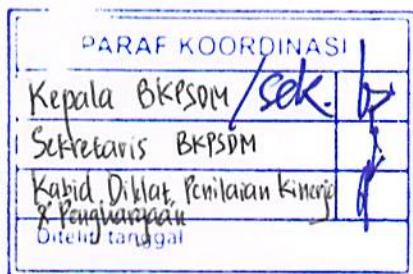 PARAF KOORDINASI
Kepala BKPSDM /sek.
Sekretaris BKPSDM
Kabid Diklat, Penilaian Kinerja
& Penghargaan
Diteliti tanggal